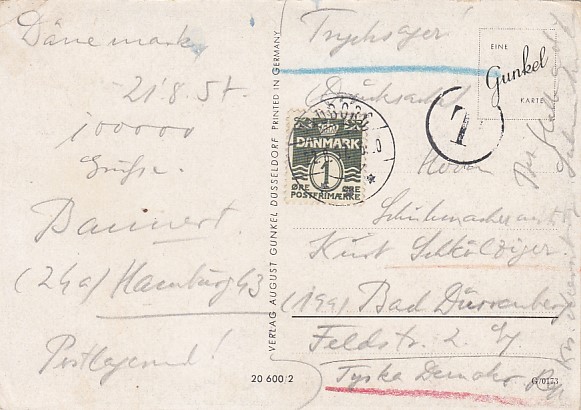 Dänemark
21.8.57.
100000
Grüße.
(24a) Hamburg 43
Postlagernd!
VERLAG AUGUST GUNKEL DÜSSELDORF PRINTED IN GERMANY
20 600/2
Tryksager!
Drucksache
EINE
Gunkel
KARTE
T
DANMARK
1
ØRE ØRE
POSTFRIMÆRKE
Herrn
Schuhmachermstr.
Kurt Schkölziger
(19a) Bad Dürrenberg
Feldstr. 2
Tyska Demokr. Rep
G/0173